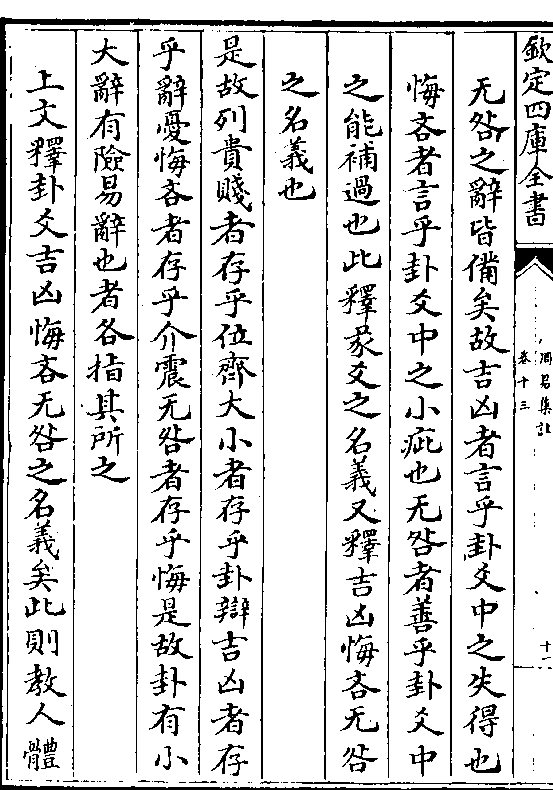 欽定四庫全書
周易集註
卷十三
十二
无咎之辭皆備矣故吉凶者言乎卦爻中之失得也
悔吝者言乎卦爻中之小疵也无咎者善乎卦爻中
之能補過也此釋彖爻之名義又釋吉凶悔吝无咎
之名義也
是故列貴賤者存乎位齊大小者存乎卦辯吉凶者存
乎辭憂悔吝者存乎介震无咎者存乎悔是故卦有小
大辭有險易辭也者各指其所之
上文釋卦爻吉凶悔吝无咎之名義矣此則教人體